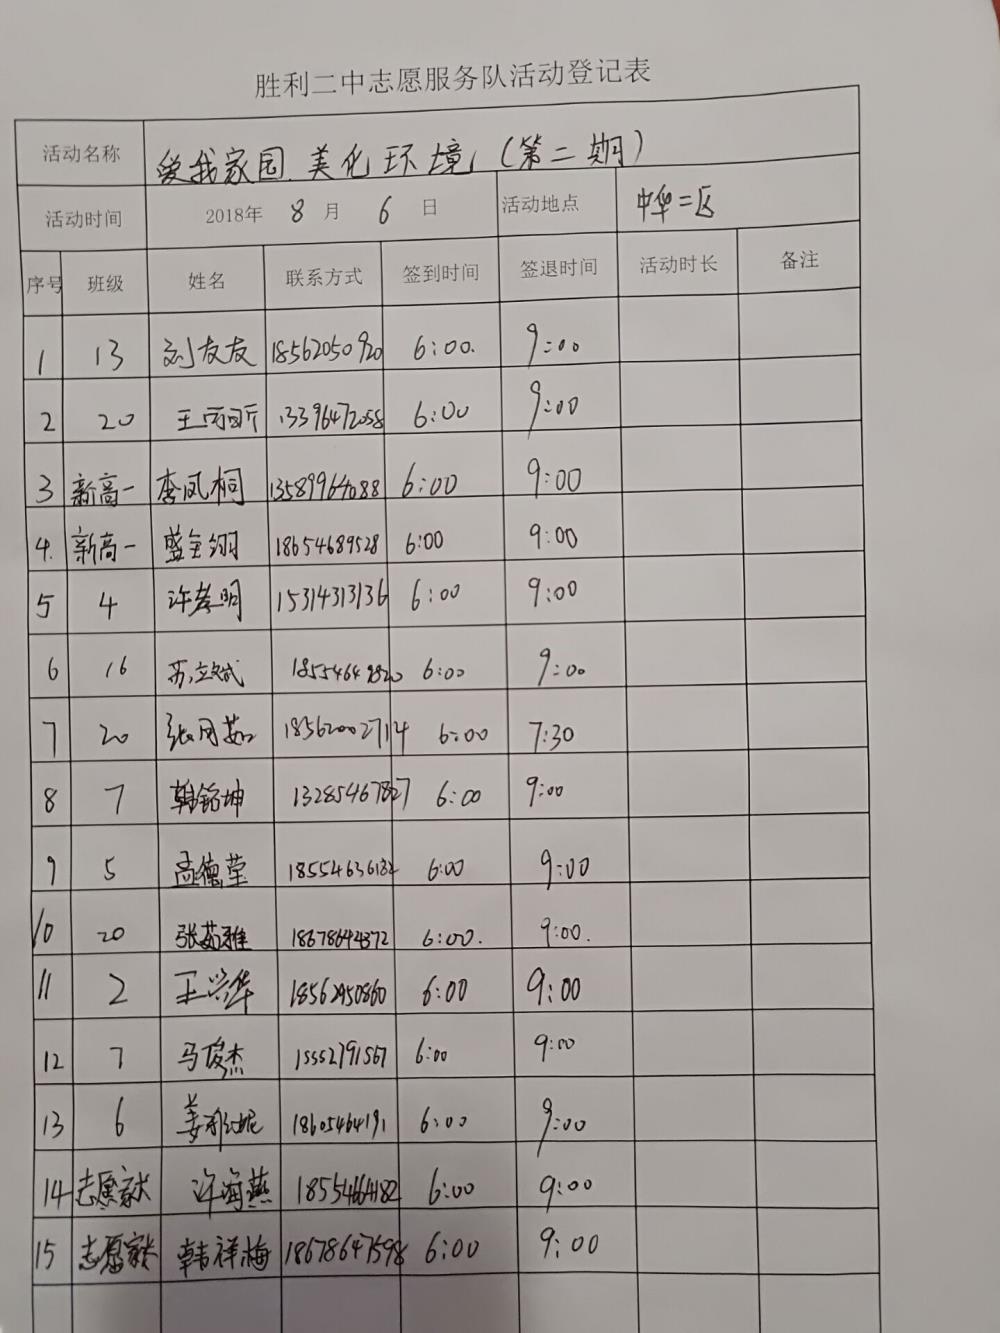 胜利二中志愿服务队活动登记表
活动名称 爱我家园.美化环境（第二期）
活动时间 2018年 8 月 6 日 活动地点 中华二区
序号 班级 姓名 联系方式 签到时间 签退时间 活动时长 备注
1 13 刘友友 18562050920 6:00. 9:00
2 20 王丙昕 13396472058 6:00 9:00
3 新高一 李凤桐 13589964088 6:00 9:00
4. 新高一 盛全翊 18654689528 6:00 9:00
5 4 许孝明 15314313136 6:00 9:00
6 16 苏立斌 18554649820 6:00 9:00
7 20 张同茹 18562002714 6:00 7:30
8 7 韩铭坤 13285467827 6:00 9:00
9 5 孟德莹 18554636182 6:00 9:00
10 20 张茹雅 18678644372 6:00. 9:00.
11 2 王兴华 18562950860 6:00 9:00
12 7 马俊杰 15552791567 6:00 9:00
13 6 姜 妮 18605464191 6:00 9:00
14 志愿家长 许海燕 18554664182 6:00 9:00
15 志愿家长 韩祥梅 18678647598 6:00 9:00